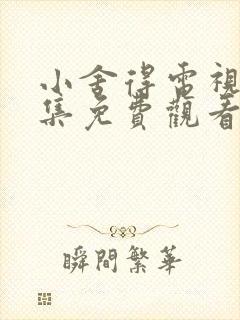 小舍得電視
集免費觀看
瞬間繁華